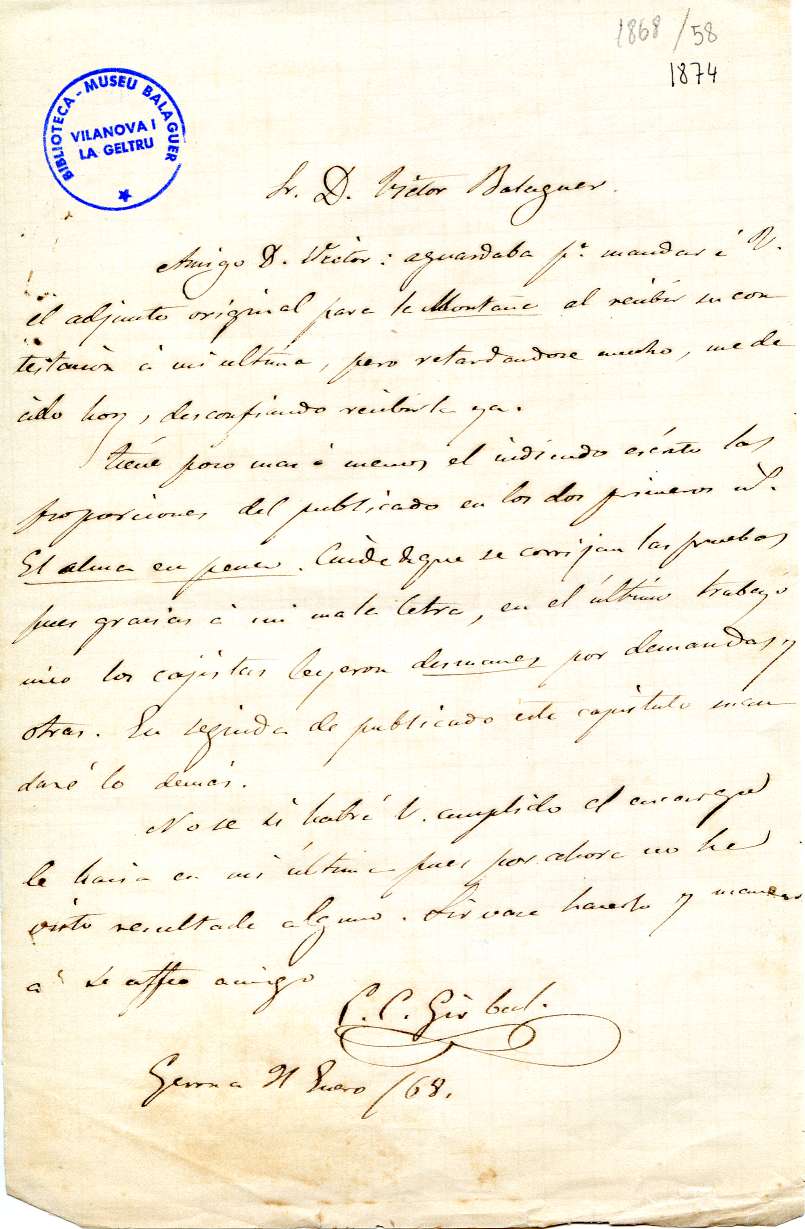 1868/58
1874
BIBLIOTECA - MUSEU BALAGUER
VILANOVA I
LA GELTRU
Sr. D. Victor Balaguer.
Amigo D. Victor: aguardaba pª. mandar á V.
el adjunto original para la Montaña al recibir su con
testacion á mi ultima, pero retardandose mucho, me de
cido hoy, desconfiando recibirla ya.
Tiene poco mas ó menos el indicado escrito las
proporciones del publicado en los dos primeros
El alma en pena. Cuide de que se corrijan las pruebas
pues gracias á mi mala letra, en el último trabajo
mio los cajistas leyeron desmanes por demandas y
otras. En seguida de publicado este capitulo man
daré lo demás.
No se si habrá V. cumplido el encargo que
le hacia en mi última pues por ahora no he
visto resultado alguno. Sirvase hacerlo y mandar
á su affmo amigo
C. C. Girbal.
Gerona 21 Enero /68.